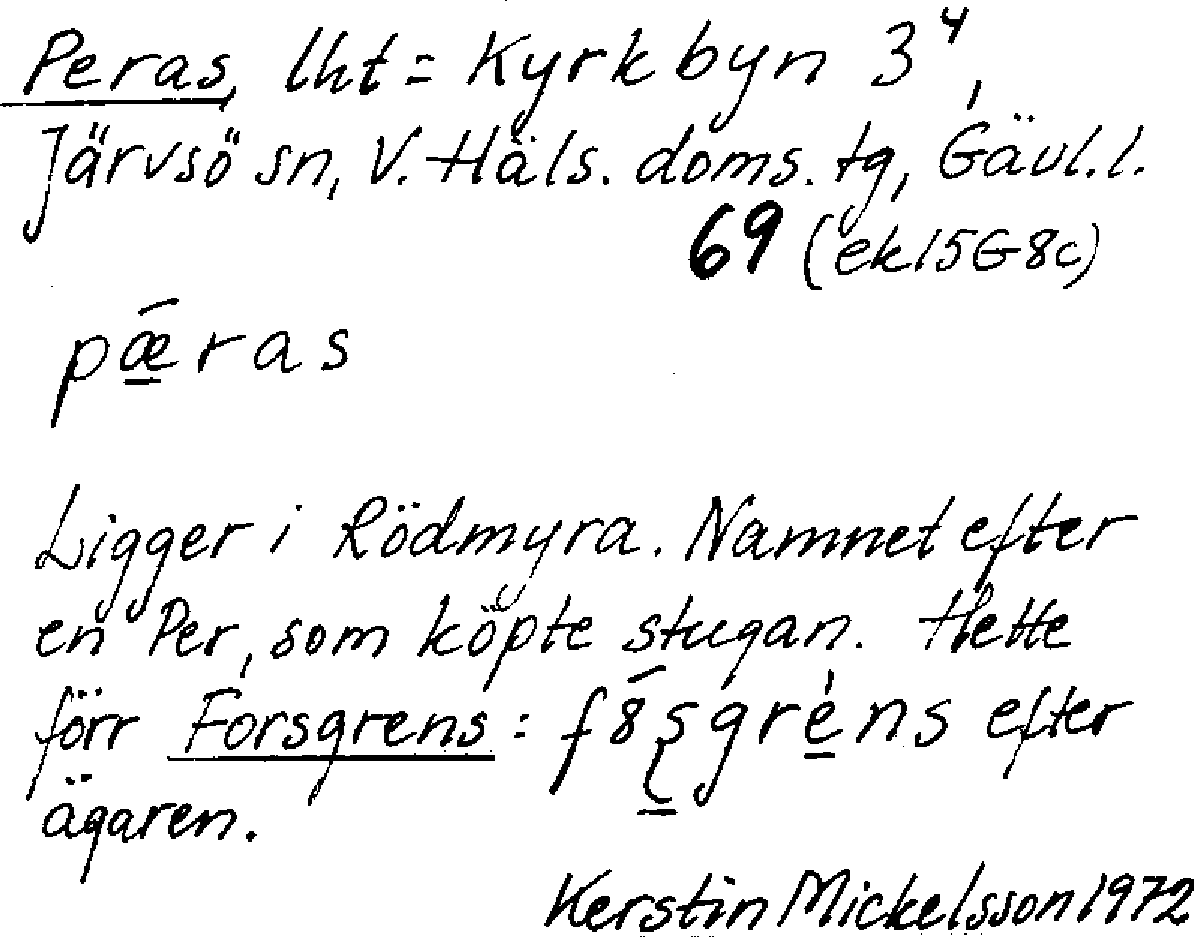 Peras, lht = Kyrkbyn 3⁴,
Järvsö sn, V. Häls. doms. tg, Gävl. l.
69 (ek 15G8c)
pǽ̱ras
Ligger i Rödmyra. Namnet efter
en Per, som köpte stugan. Hette
förr Forsgrens: f8́ʂ̱grè̱ns efter
ägaren.
Kerstin Mickelsson 1972